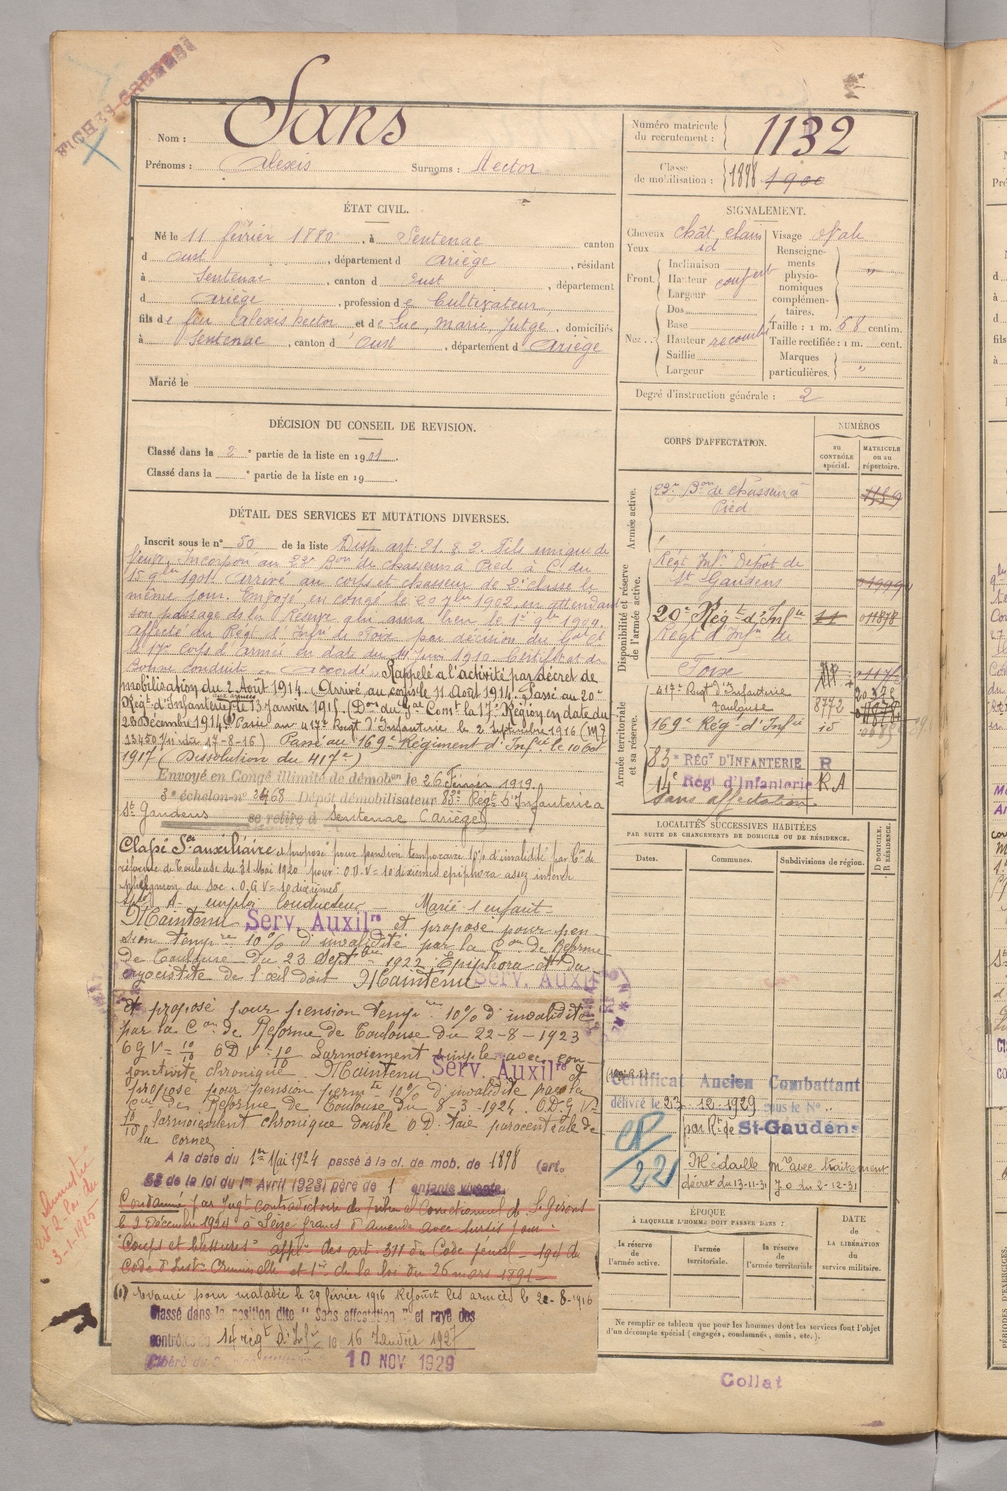 Nom : Sans
Prénoms : Alexis Surnoms : Hector
Numéro matricule du recrutement : 1132
Classe de mobilisation : 1898 1900
ÉTAT CIVIL.
Né le 11 février 1880, à Sentenac canton
d Oust, département d Ariège, résidant
à Sentenac, canton d Oust, département
d Ariège, profession de Cultivateur,
fils de feu Alexis hector et de Luc, Marie, domiciliés
à Sentenac, canton d Oust, département d Ariège
Marié le
SIGNALEMENT.
Cheveux chât. clairs Visage ovale
Yeux id
Front. Inclinaison
Hauteur
Largeur
Renseignements physionomiques complémentaires. "
Nez. Dos
Base
Hauteur
Saillie
Largeur
Taille : 1 m. 68 centim.
Taille rectifiée : 1 m. cent.
Marques particulières. "
Degré d'instruction générale : 2
DÉCISION DU CONSEIL DE REVISION.
Classé dans la 2e partie de la liste en 1901.
Classé dans la e partie de la liste en 19
DÉTAIL DES SERVICES ET MUTATIONS DIVERSES.
Inscrit sous le no 50 de la liste Disp. art. 21. § 2. Fils unique de
Veuve. Incorporé au 23e Bon de chasseurs à Pied à C. du
15 9bre 1901. Arrivé au corps et chasseur de 2e classe le
même jour. Envoyé en congé le 20 7bre 1902 en attendant
son passage dans la Réserve qui aura lieu le 1er 9bre 1904.
Affecté au Régt d'Infie de Foix par décision du Gal Ct
le 17e corps d'armée en date du Juin 1910. Certificat de
bonne conduite accordé. Rappelé à l'activité par décret de
mobilisation du 2 Août 1914. Arrivé au corps le 11 Août 1914. Passé au 20e
Régt d'Infanterie le 13 janvier 1915 (Don du Gal Comt la 17e Région en date du
28 Décembre 1914) Passé au 417e Régt d'Infanterie le 2 Septembre 1916
Passé au 169e Régiment d'Infie le 10 Oct
1917 (Dissolution du 417e)
Envoyé en Congé illimité de démobon le 26 Février 1919.
3e échelon no Dépôt démobilisateur 83e Régt d'Infanterie à
St Gaudens se retire à Sentenac (Ariège)
Classé Sce auxiliaire et proposé pour pension temporaire 10% d'invalidité par Con de
réforme de Toulouse du 31 Mai 1920 pour : O.D. V = 10 dixièmes epiphora
O.G V = 10 dixièmes
emploi conducteur Marié 1 enfant
Maintenu Serv. Auxilre et proposé pour pen
sion tempre 10% d'invalidité par la Con de Réforme
de Toulouse du 23 Septbre 1922 Epiphora
de l'œil droit Maintenu Serv. Auxil
et proposé pour pension tempre 10% d'invalidité
par la Con de Réforme de Toulouse du 22-8-1923
OGV = 10/10 ODV = 10/10 Larmoiement simple avec con
jonctivite chronique. Maintenu Serv. Auxilre et
proposé pour pension permte 10% d'invalidité par la
Con de Réforme de Toulouse du 8-3-1924. O.D.G V=
10/10 larmoiement chronique double O.D. Taie paracentrale de
la cornée
A la date du 1er Mai 1924 passé à la cl. de mob. de 1898 (art.
58 de la loi du 1er Avril 1923) père de 1 enfants vivants.
Condamné par Jugt contradictoire du Tribunal Correctionnel de St Girons
le 2 Décembre 1924 à Seize francs d'Amende avec sursis pour
"Coups et blessures" appl. des art. 311 du Code pénal - 194 du
Code d'Instn Criminelle et 1er de la loi du 26 mars 1891
(1) Evacué pour maladie le 29 février 1916 Rejoint les armées le 22-8-1916
Classé dans la position dite "Sans affectation" et rayé des
contrôles du 14e régt d'Infie le 16 Janvier 1927
Libéré du
10 NOV 1929
CORPS D'AFFECTATION.
NUMÉROS
au CONTRÔLE spécial.
MATRICULE ou au répertoire.
Armée active.
23e Bon de chasseurs à Pied 1159
Disponibilité et réserve de l'armée active.
Régt Infie Dépôt de St Gaudens
20e Régt d'Infie 11
Régt d'Infie de Foix
Armée territoriale et sa réserve.
417e Regt d'Infanterie Toulouse 8772
169e Rég. d'Infie 15
83e RÉGT D'INFANTERIE R
14e Régt d'Infanterie RA
Sans affectation
LOCALITÉS SUCCESSIVES HABITÉES
PAR SUITE DE CHANGEMENTS DE DOMICILE OU DE RÉSIDENCE.
Dates. Communes. Subdivisions de région. D DOMICILE. R RÉSIDENCE.
Certificat Ancien Combattant
délivré le 23-12-1929 sous le No
par R. de St-Gaudens
Médaille Mre avec traitement
décret du 13-11-31 J.O du 2-12-31
ÉPOQUE
À LAQUELLE L'HOMME DOIT PASSER DANS :
la réserve de l'armée active.
l'armée territoriale.
la réserve de l'armée territoriale
DATE DE LA LIBÉRATION du service militaire.
Ne remplir ce tableau que pour les hommes dont les services font l'objet
d'un décompte spécial (engagés, condamnés, omis, etc.).
Collat